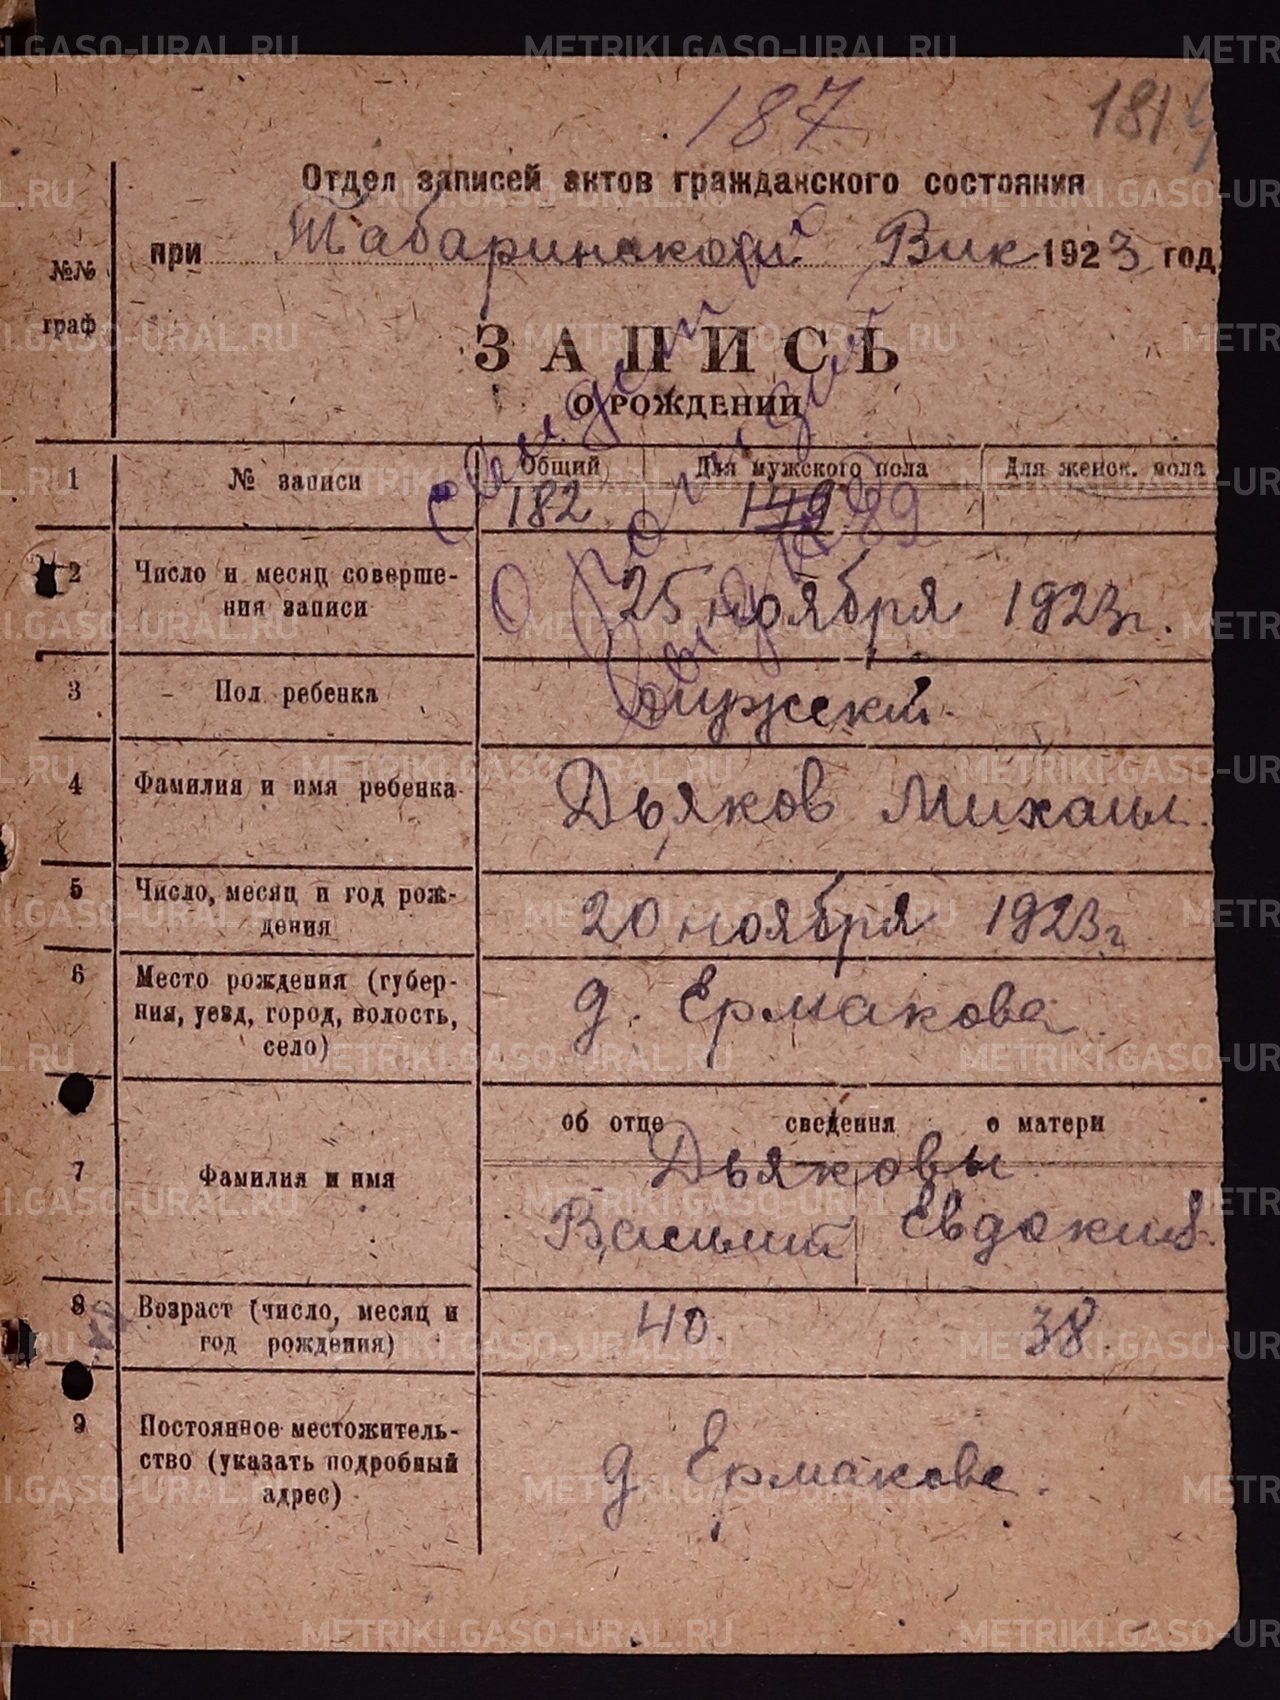 METRIKI.GASO-URAL.RU
187
181
Отдел записей актов гражданского состояния
при Табаринском Вик 1923 год
№№ граф
ЗАПИСЬ
О РОЖДЕНИИ
1 № записи Общий Для мужского пола Для женск. пола
182 149 89
2 Число и месяц соверше-
ния записи
25 ноября 1923 г.
3 Пол ребенка мужской.
4 Фамилия и имя ребенка Дьяков Михаил.
5 Число, месяц и год рож-
дения
20 ноября 1923 г
6 Место рождения (губер-
ния, уезд, город, волость,
село)
д. Ермакова.
об отце сведения о матери
7 Фамилия и имя
Дьяковы
Василий Евдокия.
8 Возраст (число, месяц и
год рождения)
40. 38.
9 Постоянное местожитель-
ство (указать подробный
адрес)
д. Ермакова.